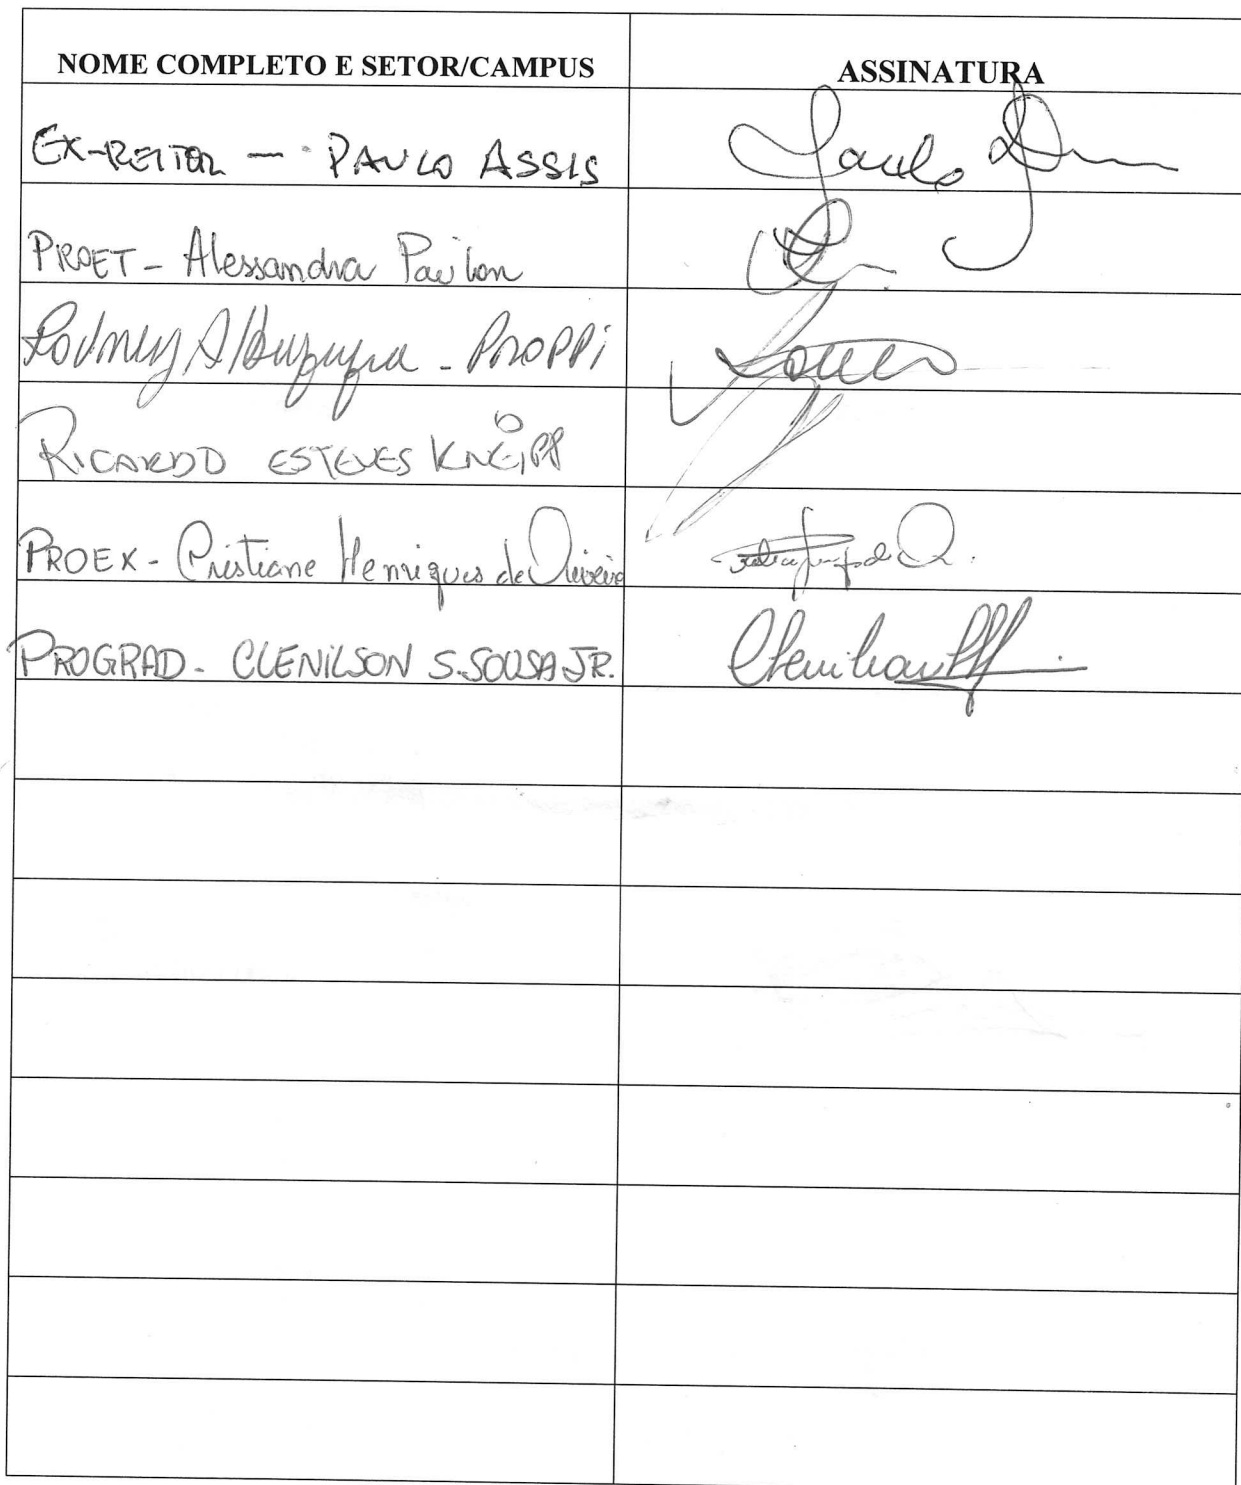 NOME COMPLETO E SETOR/CAMPUS ASSINATURA
EX-REITOR — PAULO ASSIS Paulo
PROET - Alessandra Paulon
Rodney Albuquerque - PROPPI
RICARDO ESTEVES KNEIPP
PROEX - Cristiane Henriques de Oliveira
PROGRAD - CLENILSON S. SOUSA JR. Clenilson